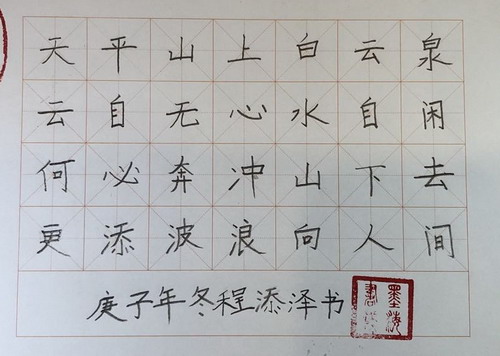 天平山上白云泉
云自无心水自闲
何必奔冲山下去
更添波浪向人间
庚子年冬程添泽书